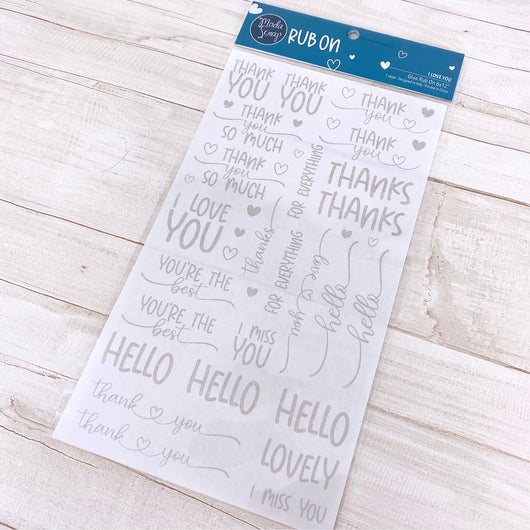 Moda
Scrap
RUB ON
I LOVE YOU
Glue Rub On 6x12"
THANK
YOU
THANK
YOU
THANK
you
THANK
you
SO MUCH
THANK
you
THANK
you
SO MUCH
FOR EVERYTHING
THANKS
THANKS
I LOVE
YOU
thanks
FOR EVERYTHING
hello
hello
YOU'RE THE
best
YOU'RE THE
best
I MISS
YOU
HELLO
HELLO
HELLO
thank you
thank you
LOVELY
I MISS YOU